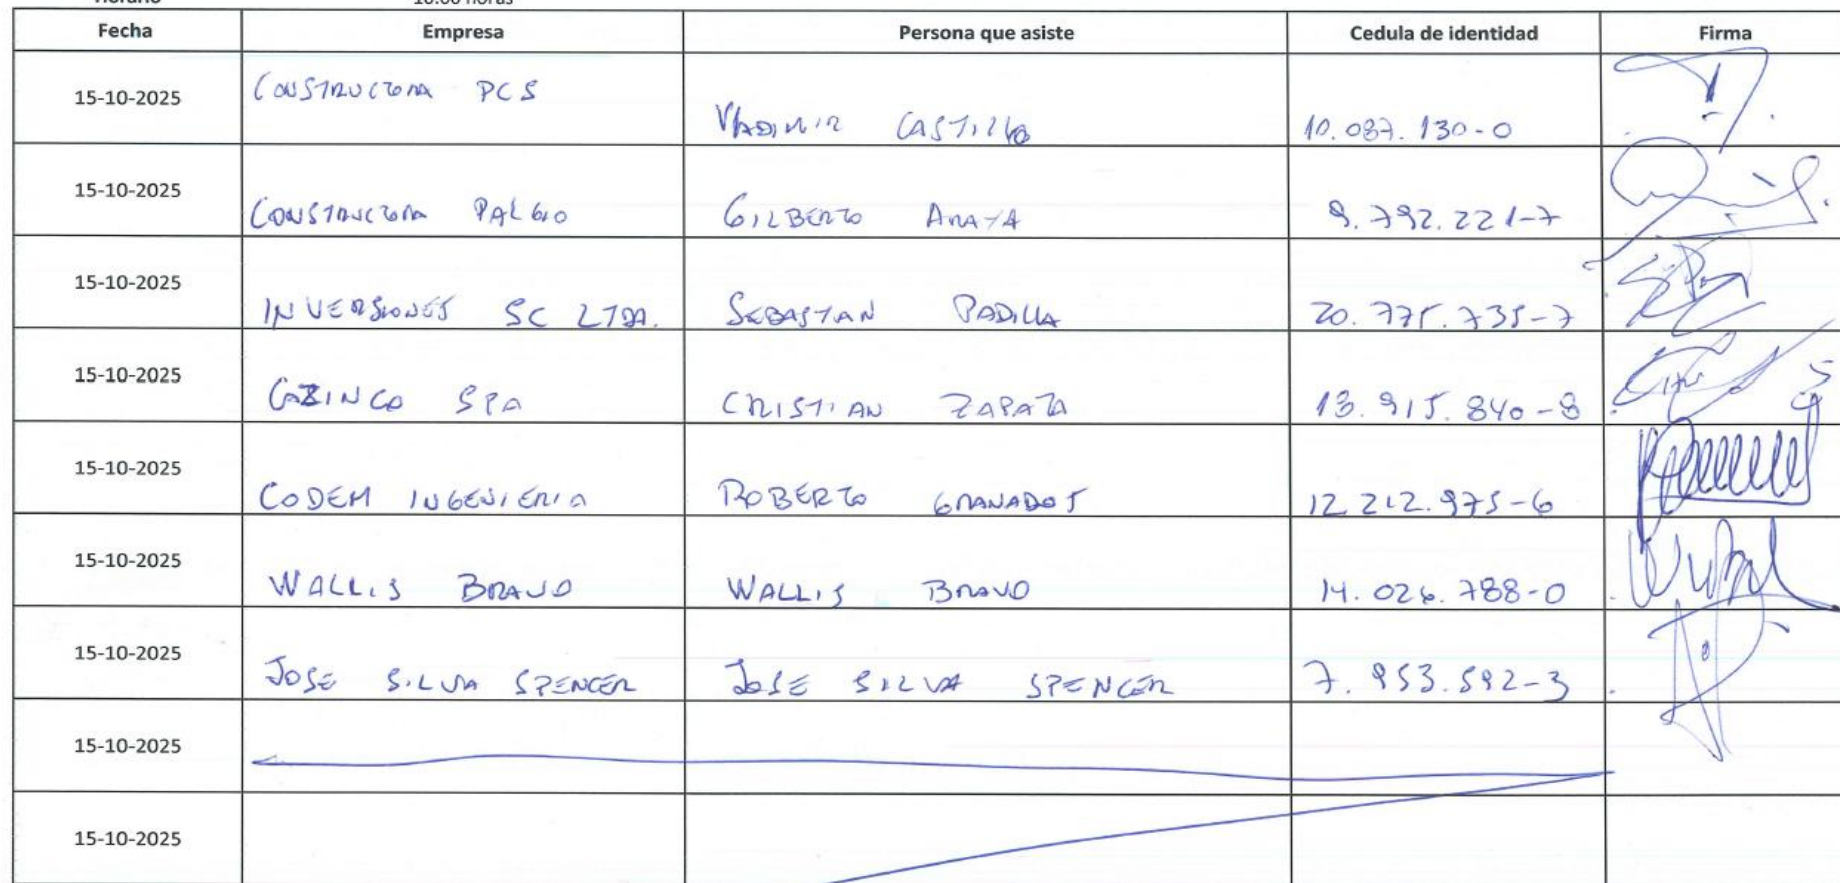 Horario 10:00 horas
Fecha Empresa Persona que asiste Cedula de identidad Firma
15-10-2025 CONSTRUCTORA PCS VLADIMIR CASTILLO 10.087.130-0
15-10-2025 CONSTRUCTORA PALGIO GILBERTO ARAYA 9.792.221-7
15-10-2025 INVERSIONES SC LTDA. SEBASTIAN PADILLA 20.775.735-7
15-10-2025 SPA CRISTIAN ZAPATA 13.915.840-8
15-10-2025 CODEM INGENIERIA ROBERTO GRANADOS 12.212.975-6
15-10-2025 WALLIS BRAVO WALLIS BRAVO 14.026.788-0
15-10-2025 JOSE SILVA SPENCER JOSE SILVA SPENCER 7.953.592-3
15-10-2025
15-10-2025